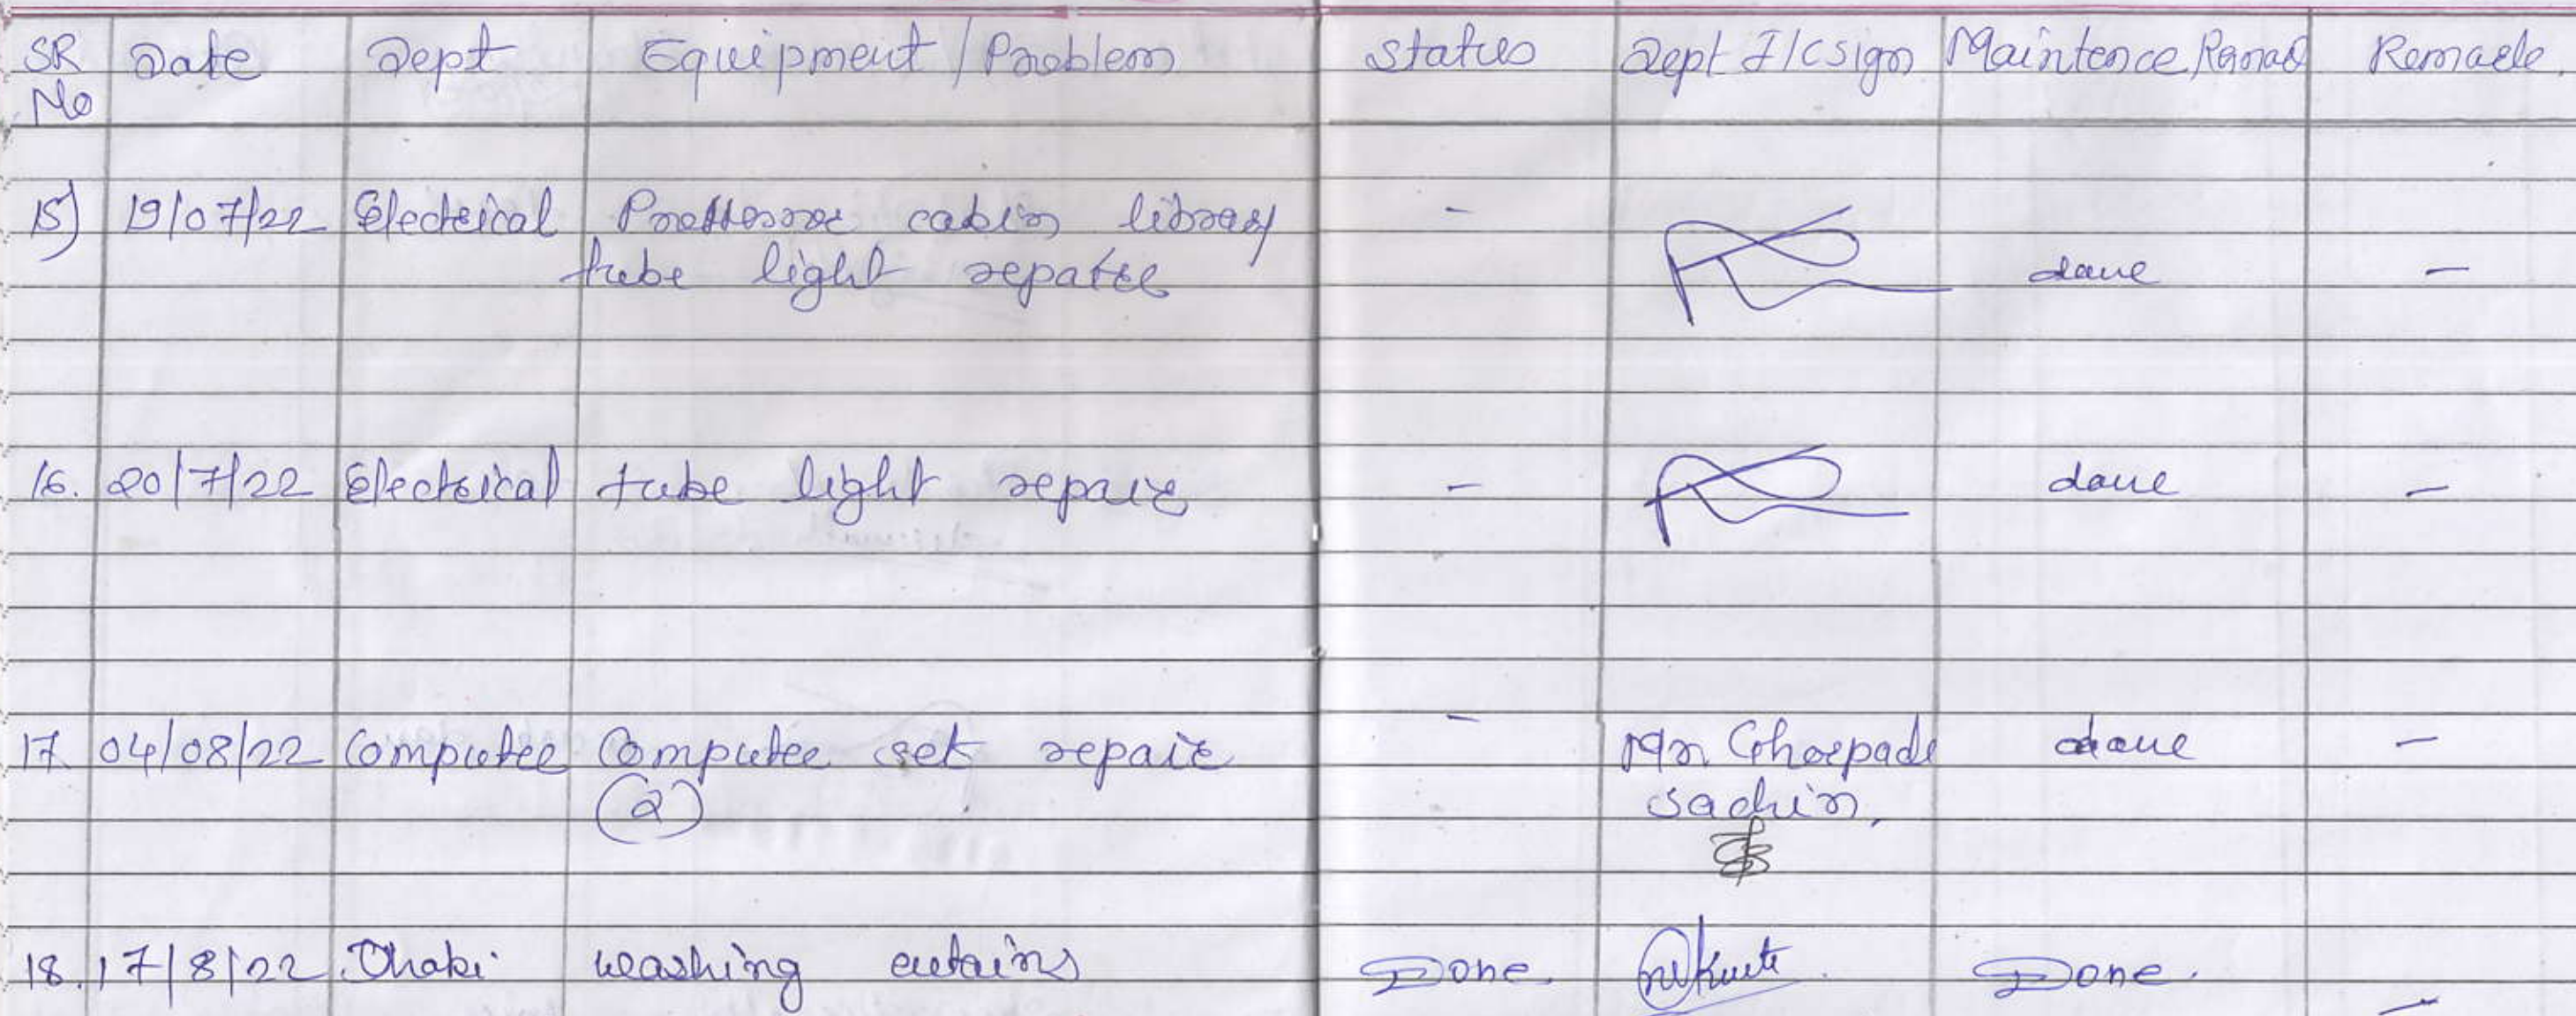 SR No Date Dept Equipment / Problem Status Dept I/C sign Maintence Remark Remark
15) 19/07/22 Electrical Proffessor cabin library -
tube light repair done -
16. 20/7/22 Electrical tube light repair - done -
17. 04/08/22 Computer Computer set repair - Mr. Ghorpade done -
(2) Sachin.
18. 17/8/22 Dhobi washing curtains Done. Done. -